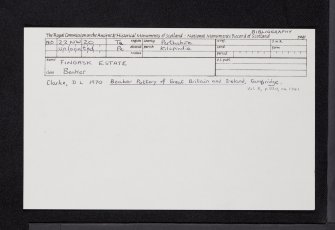 BIBLIOGRAPHY
The Royal Commission on the Ancient & Historical Monuments of Scotland - National Monuments Record of Scotland
NO 22 NW 20 Ta Perthshire
unlocated Pe Kilspindie
FINGASK ESTATE
Beaker
Clarke, D L 1970 Beaker Pottery of Great Britain and Ireland, Cambridge.
Vol 2, p. 520, no. 1721